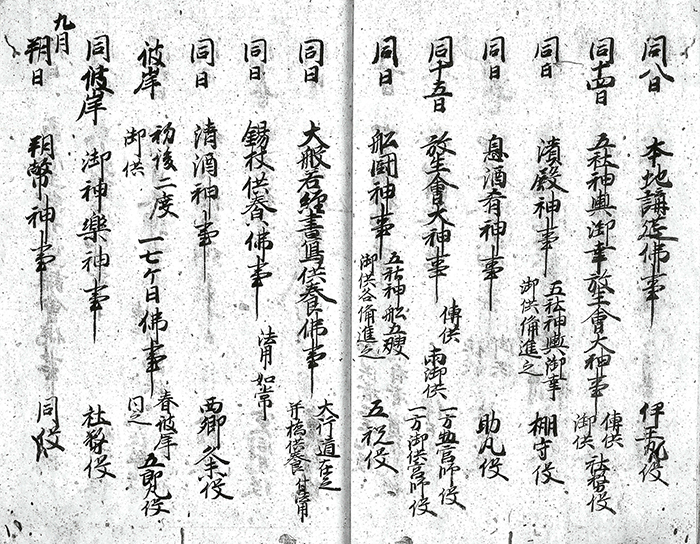 同八日 本地講延佛事 伊王丸役
同十四日 五社神輿御幸放生會大神事 傳供 御供 社務役
同日 濱殿神事 五社神輿御事 御供備進之 棚守役
同日 息酒肴神事 助九役
同十五日 放生會大神事 傳供 両御供 一方惣官師役 一方御供官師役
同日 舩圖神事 五社神舩五艘 御供各備進之 五祝役
同日 大般若經書寫供養佛事 大行道在之 并橋供養
同日 錫杖供養佛事 法用如常
同日 清酒神事 西郷 役
彼岸 初後二度 御供 一七ケ日佛事 春彼岸 同之 五郎丸役
同彼岸 御神樂神事 社務役
九月
朔日 朔幣神事 同役